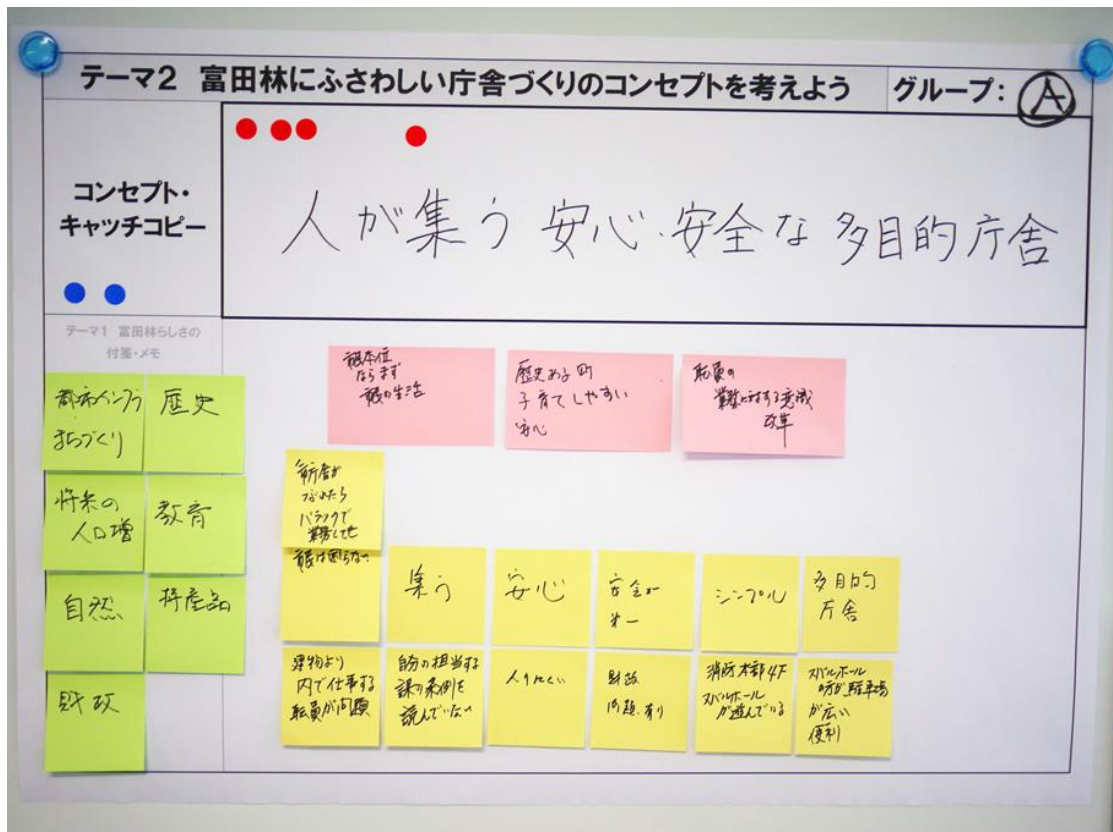 テーマ2 富田林にふさわしい庁舎づくりのコンセプトを考えよう グループ: A
コンセプト・
キャッチコピー
人が集う 安心・安全な 多目的庁舎
テーマ1 富田林らしさの
付箋・メモ
都市インフラ
まちづくり
歴史
将来の
人口増
教育
自然
特産品
財政
ならず
の生活
歴史ある町
子育てしやすい
安心
職員の
に対する意識
改革
市庁舎が
つぶれたら
バラックで
業務しても
市民は困らない
集う
安心
安全が
第一
シンプル
多目的
庁舎
建物より
内で仕事する
職員が問題
自分の担当する
課の条例を
読んでいない
入りにくい
財政
問題.有り
消防本部 4F
スバルホール
が遊んでいる
スバルホール
の方が駐車場
が広い
便利